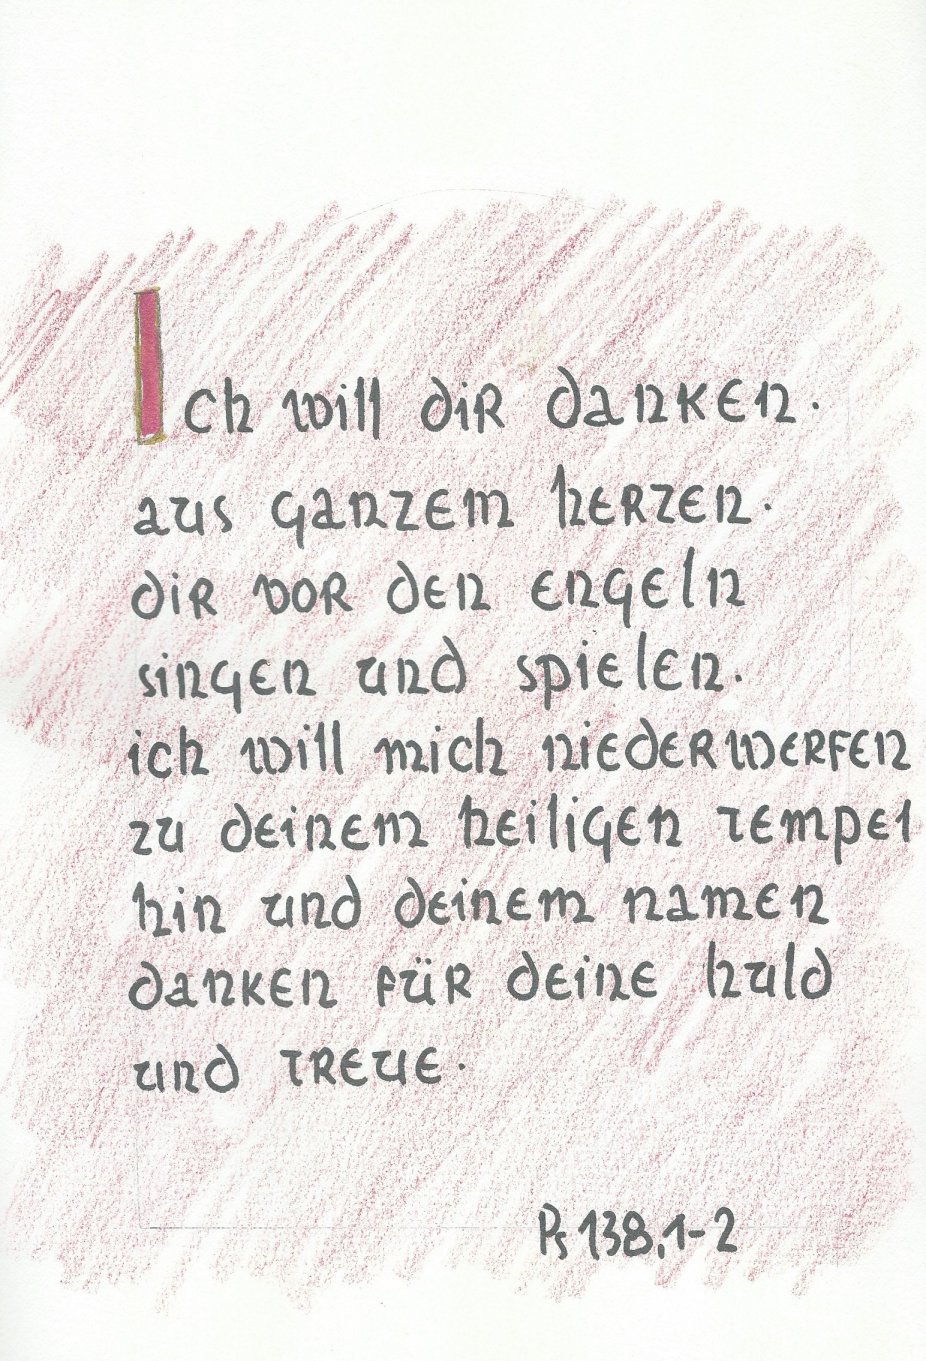 Ich will dir danken.
aus ganzem herzen.
dir vor den engeln
singen und spielen.
ich will mich niederwerfen
zu deinem heiligen tempel
hin und deinem namen
danken für deine huld
und treue.
Ps 138,1-2